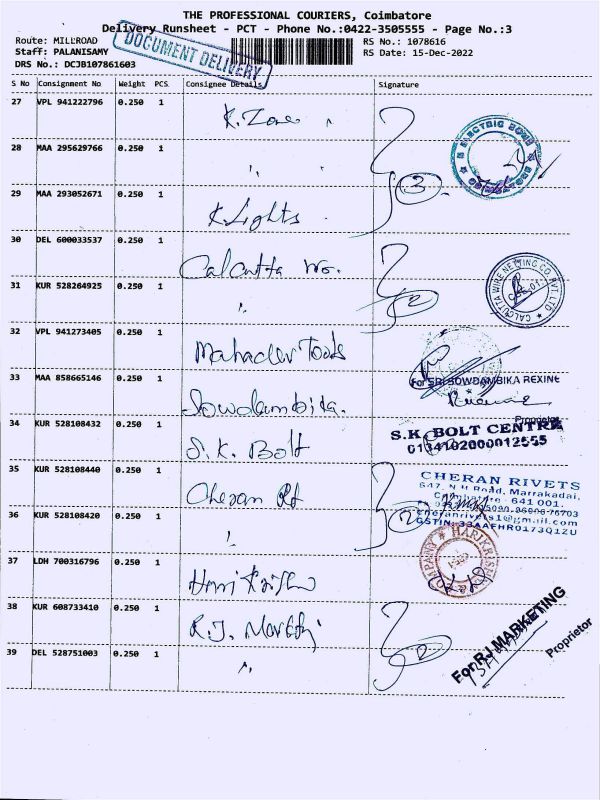 THE PROFESSIONAL COURIERS, Coimbatore
Delivery Runsheet - PCT - Phone No.:0422-3505555 - Page No.:3
Route: MILLROAD
Staff: PALANISAMY
DRS No.: DCJB107861603
DOCUMENT DELIVERY
RS No.: 1078616
RS Date: 15-Dec-2022
S No Consignment No Weight PCS Consignee Details Signature
27 VPL 941222796 0.250 1 K. Zone
28 MAA 295629766 0.250 1 "
29 MAA 293052671 0.250 1 K. Lights
3
30 DEL 600033537 0.250 1 Calcutta
31 KUR 528264925 0.250 1 "
2
CALCUTTA WIRE NETTING CO. PVT. LTD
32 VPL 941273405 0.250 1 Mahadev Tools
33 MAA 858665146 0.250 1 Sowdambika.
For SRI SOWDAMBIKA REXINE
Proprietor
34 KUR 528108432 0.250 1 S.K. Bolt
S.K. BOLT CENTRE
35 KUR 528108440 0.250 1 Cheran
36 KUR 528108420 0.250 1 "
2
CHERAN RIVETS
Marrakadai,
Coimbatore - 641 001.
cheranrivets1@gmail.com
GSTIN: 33AAFHR0173Q1ZU
37 LDH 700316796 0.250 1
38 KUR 608733410 0.250 1 R.J.
39 DEL 528751003 0.250 1 "
2
For RJ MARKETING
Proprietor